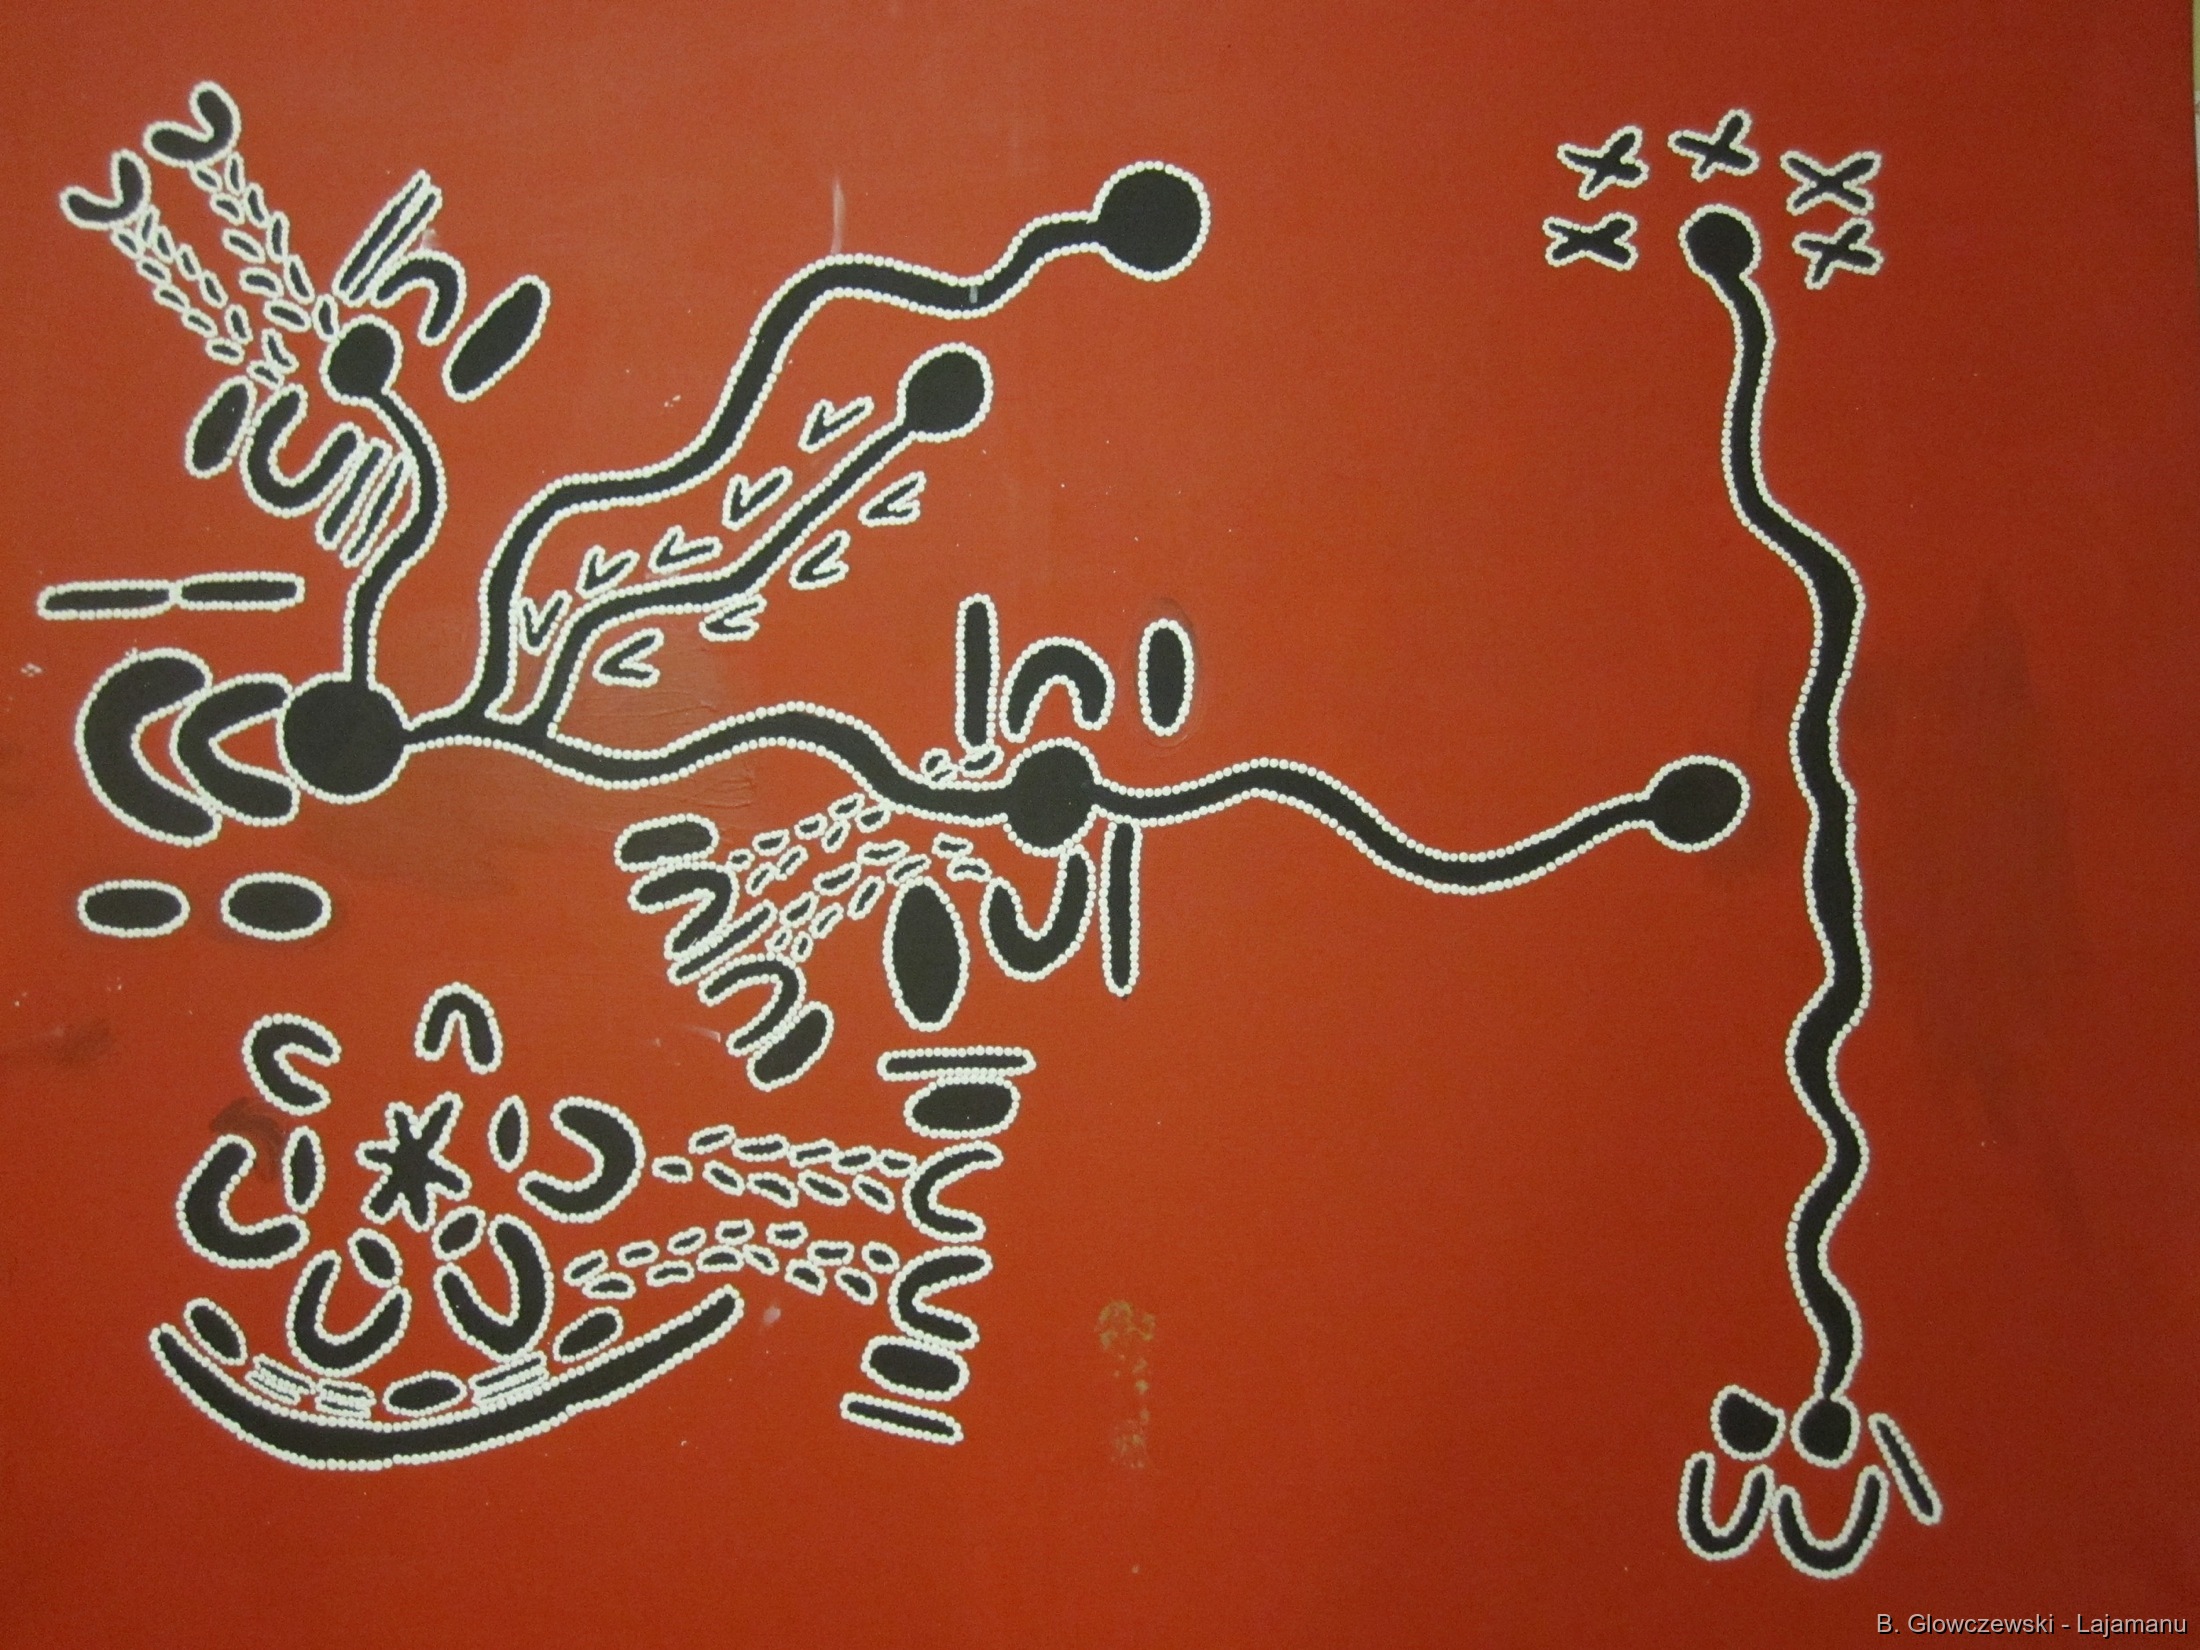 B. Glowczewski - Lajamanu